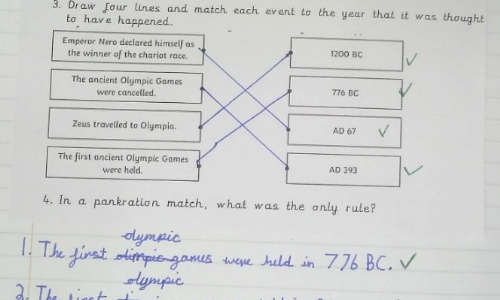 3. Draw four lines and match each event to the year that it was thought
to have happened.
Emperor Nero declared himself as
the winner of the chariot race.
1200 BC
The ancient Olympic Games
were cancelled.
776 BC
Zeus travelled to Olympia.
AD 67
The first ancient Olympic Games
were held.
AD 393
4. In a pankration match, what was the only rule?
olympic
1. The first olimpic games were held in 776 BC.
olympic
2. The first